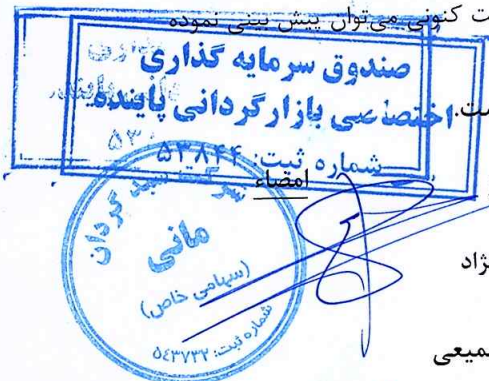 ت کنونی می‌توان پیش بینی نموده
صندوق سرمایه گذاری
اختصاصی بازارگردانی پاینده
ست.
شماره ثبت: ۵۳۸۴۴
امضاء
شرکت سبد گردان
مانی
(سهامی خاص)
شماره ثبت: ۵۴۳۷۳۲
ژاد
میعی